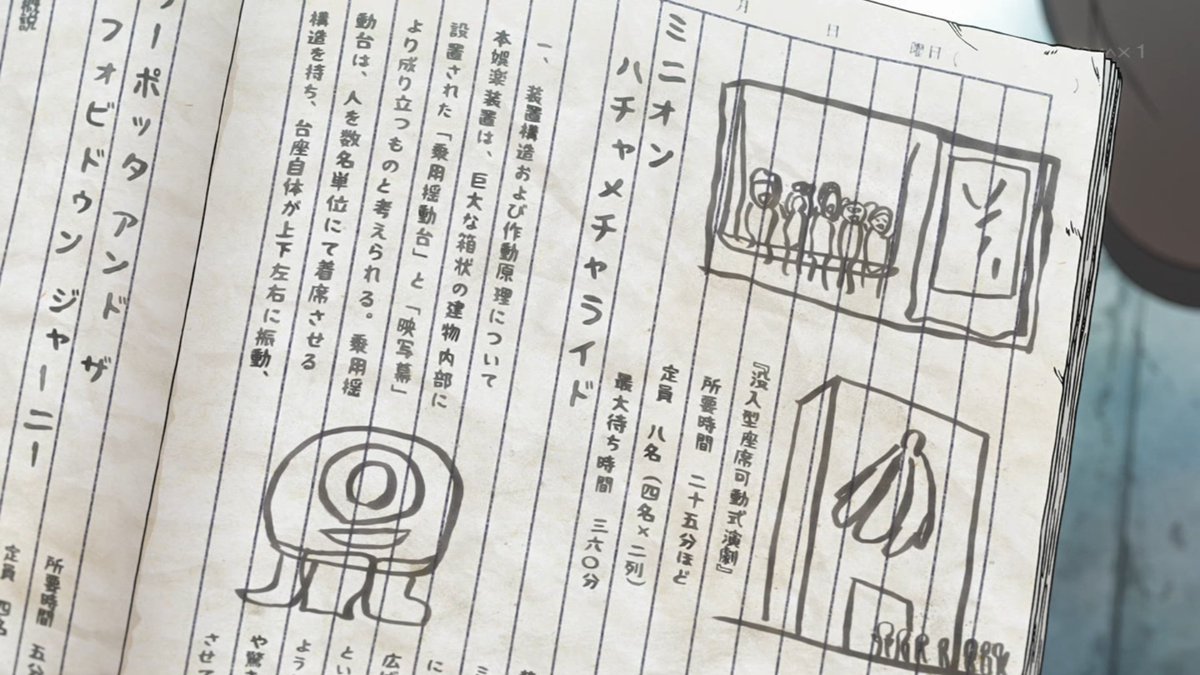 月　日　曜日（　）
×1
ミニオン
ハチャメチャライド
『没入型座席可動式演劇』
所要時間　二十五分ほど
定員　八名（四名×二列）
最大待ち時間　三六〇分
一、装置構造および作動原理について
本娯楽装置は、巨大な箱状の建物内部に
設置された「乗用揺動台」と「映写幕」
より成り立つものと考えられる。乗用揺
動台は、人を数名単位にて着席させる
構造を持ち、台座自体が上下左右に振動、
に
広
とい
よう
や驚
させて
ーポッタアンドザ
フォビドゥンジャーニー
所要時間　五分
定員　四名
概説